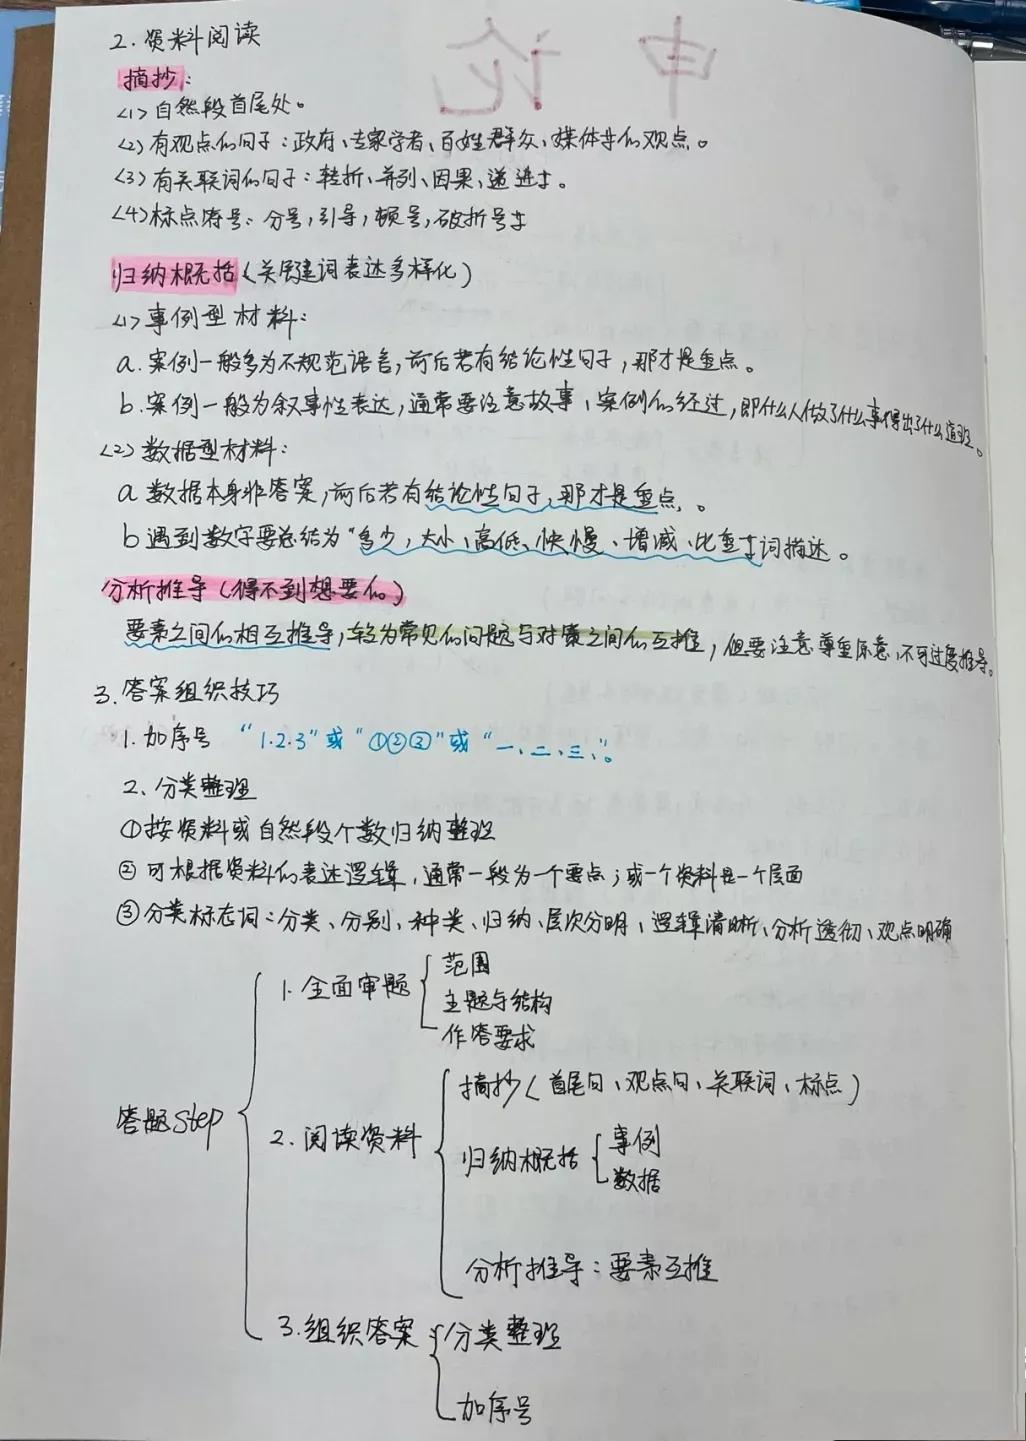 申论
2.资料阅读
摘抄:
<1>自然段首尾处。
<2>有观点的句子:政府、专家学者、百姓群众、媒体等的观点。
<3>有关联词的句子:转折、并列、因果、递进等。
<4>标点符号:分号,引号,顿号,破折号等
归纳概括(关键词表达多样化)
<1>事例型材料:
a.案例一般多为不规范语言,前后若有结论性句子,那才是重点。
b.案例一般为叙事性表达,通常要注意故事、案例的经过,即什么人做了什么事得出了什么道理。
<2>数据型材料:
a数据本身非答案,前后若有结论性句子,那才是重点。
b遇到数字要总结为“多少,大小、高低、快慢、增减、比重等词描述。
分析推导(得不到想要的)
要素之间的相互推导,较为常见的问题与对策之间的互推,但要注意尊重原意,不可过度推导。
3.答案组织技巧
1.加序号 “1.2.3”或“①②③”或“一、二、三、”。
2、分类整理
①按资料或自然段个数归纳整理
②可根据资料的表达逻辑,通常一段为一个要点;或一个资料是一个层面
③分类标志词:分类、分别、种类、归纳、层次分明、逻辑清晰、分析透彻、观点明确
答题Step
1.全面审题
范围
主题与结构
作答要求
2.阅读资料
摘抄(首尾句、观点句、关联词、标点)
归纳概括
事例
数据
分析推导:要素互推
3.组织答案
分类整理
加序号